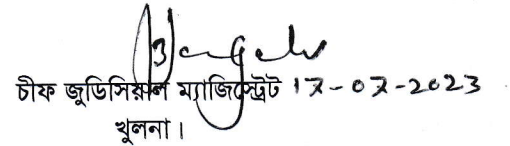 চীফ জুডিসিয়াল ম্যাজিস্ট্রেট 17-07-2023
খুলনা।